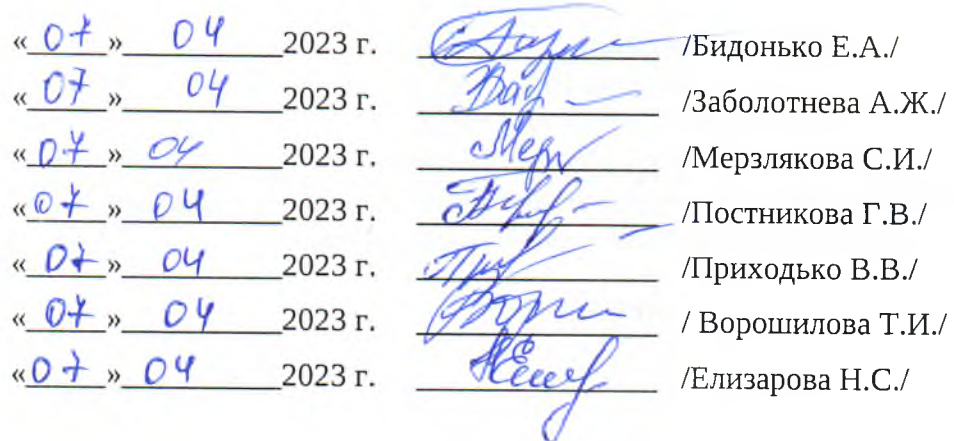 «07» 04 2023 г. /Бидонько Е.А./
«07» 04 2023 г. /Заболотнева А.Ж./
«07» 04 2023 г. /Мерзлякова С.И./
«07» 04 2023 г. /Постникова Г.В./
«07» 04 2023 г. /Приходько В.В./
«07» 04 2023 г. / Ворошилова Т.И./
«07» 04 2023 г. /Елизарова Н.С./